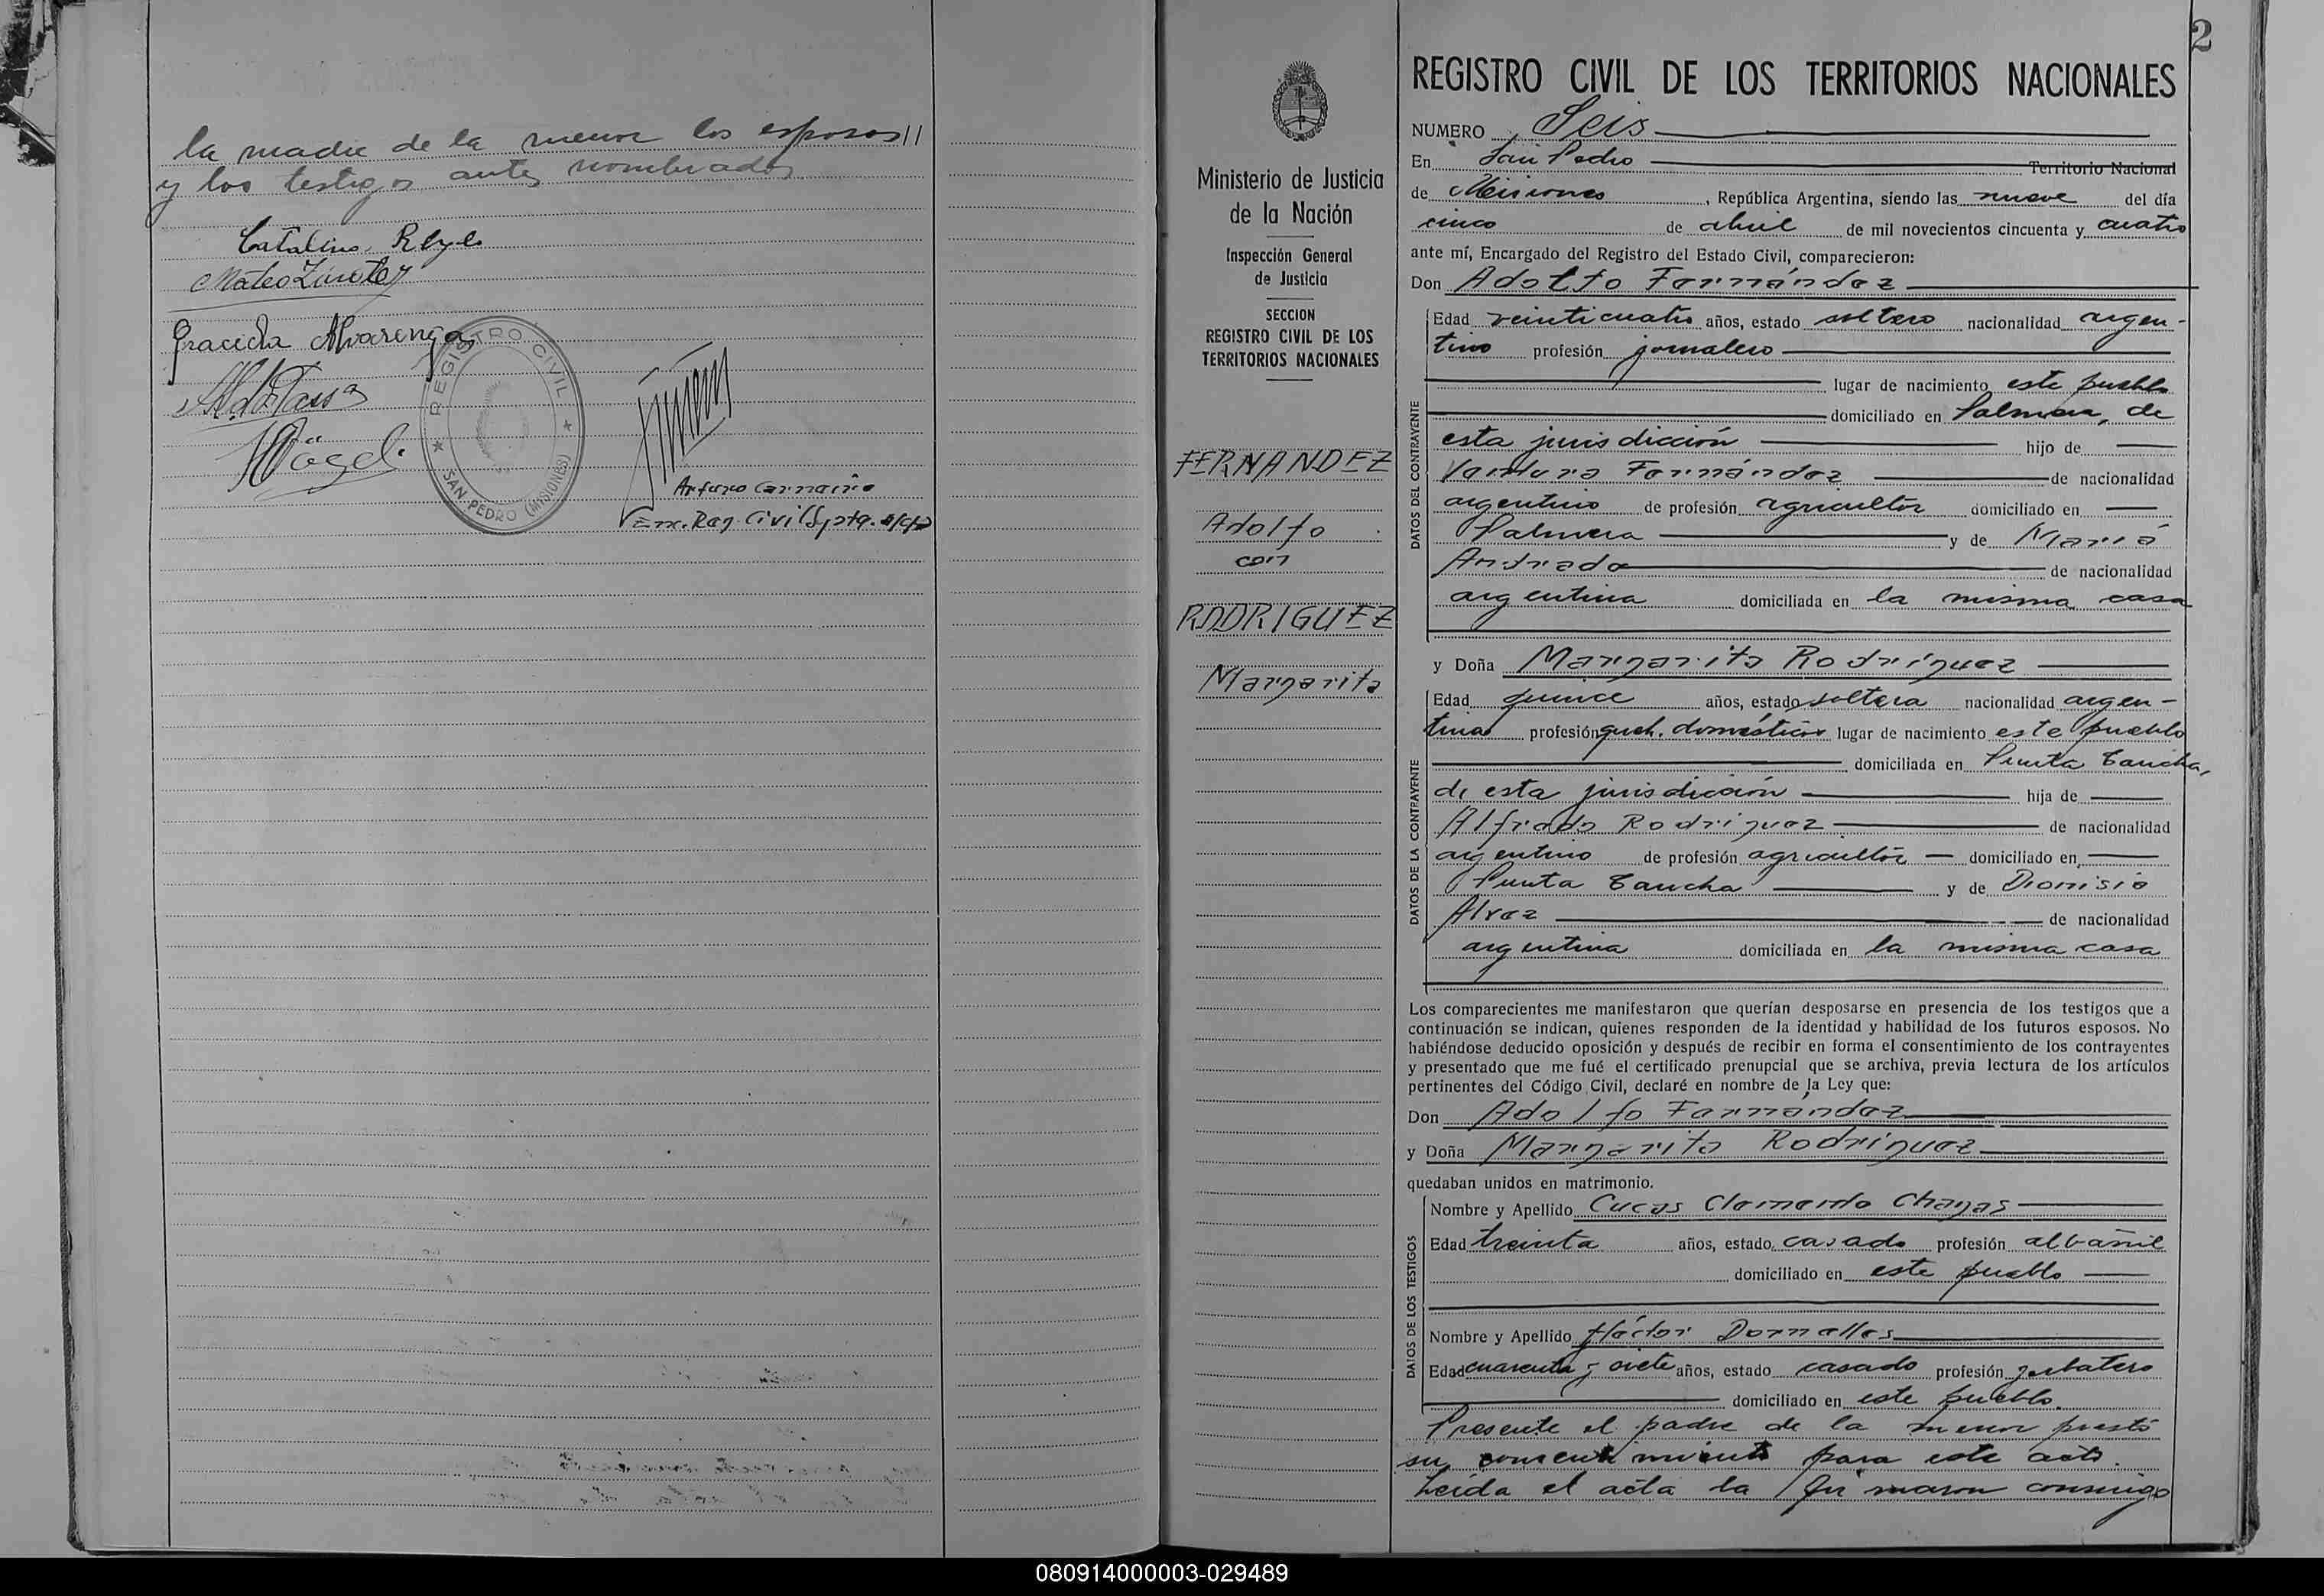 la madre de la menor los esposos//
y los testigos antes nombrados
Catalina Reyes
Mateo Zarate
Graciela Alvarenga
REGISTRO CIVIL
SAN PEDRO (MISIONES)
Arturo
Enc. Reg. Civil
2
REGISTRO CIVIL DE LOS TERRITORIOS NACIONALES
Ministerio de Justicia
de la Nación
Inspección General
de Justicia
SECCION
REGISTRO CIVIL DE LOS
TERRITORIOS NACIONALES
FERNANDEZ
Adolfo
con
RODRIGUEZ
Margarita
NUMERO Seis
En San Pedro Territorio Nacional
de Misiones, República Argentina, siendo las nueve del día
cinco de abril de mil novecientos cincuenta y cuatro
ante mí, Encargado del Registro del Estado Civil, comparecieron:
Don Adolfo Fernández
DATOS DEL CONTRAYENTE
Edad veinticuatro años, estado soltero nacionalidad argen-
tino profesión jornalero
lugar de nacimiento este pueblo
domiciliado en Palmera, de
esta jurisdicción hijo de
Ventura Fernández de nacionalidad
argentino de profesión agricultor domiciliado en
Palmera y de María
Andrade de nacionalidad
argentina domiciliada en la misma casa
y Doña Margarita Rodríguez
DATOS DE LA CONTRAYENTE
Edad quince años, estado soltera nacionalidad argen-
tina profesión queh. domésticos lugar de nacimiento este pueblo
domiciliada en Punta Caucha,
de esta jurisdicción hija de
Alfredo Rodríguez de nacionalidad
argentino de profesión agricultor domiciliado en
Punta Caucha y de Dionisia
Alvez de nacionalidad
argentina domiciliada en la misma casa
Los comparecientes me manifestaron que querían desposarse en presencia de los testigos que a
continuación se indican, quienes responden de la identidad y habilidad de los futuros esposos. No
habiéndose deducido oposición y después de recibir en forma el consentimiento de los contrayentes
y presentado que me fué el certificado prenupcial que se archiva, previa lectura de los artículos
pertinentes del Código Civil, declaré en nombre de la Ley que:
Don Adolfo Fernández
y Doña Margarita Rodríguez
quedaban unidos en matrimonio.
DATOS DE LOS TESTIGOS
Nombre y Apellido Chagas
Edad treinta años, estado casado profesión albañil
domiciliado en este pueblo
Nombre y Apellido Héctor Dornelles
Edad cuarenta y siete años, estado casado profesión yerbatero
domiciliado en este pueblo.
Presente el padre de la menor prestó
su consentimiento para este acto.
Leída el acta la firmaron conmigo
080914000003-029489